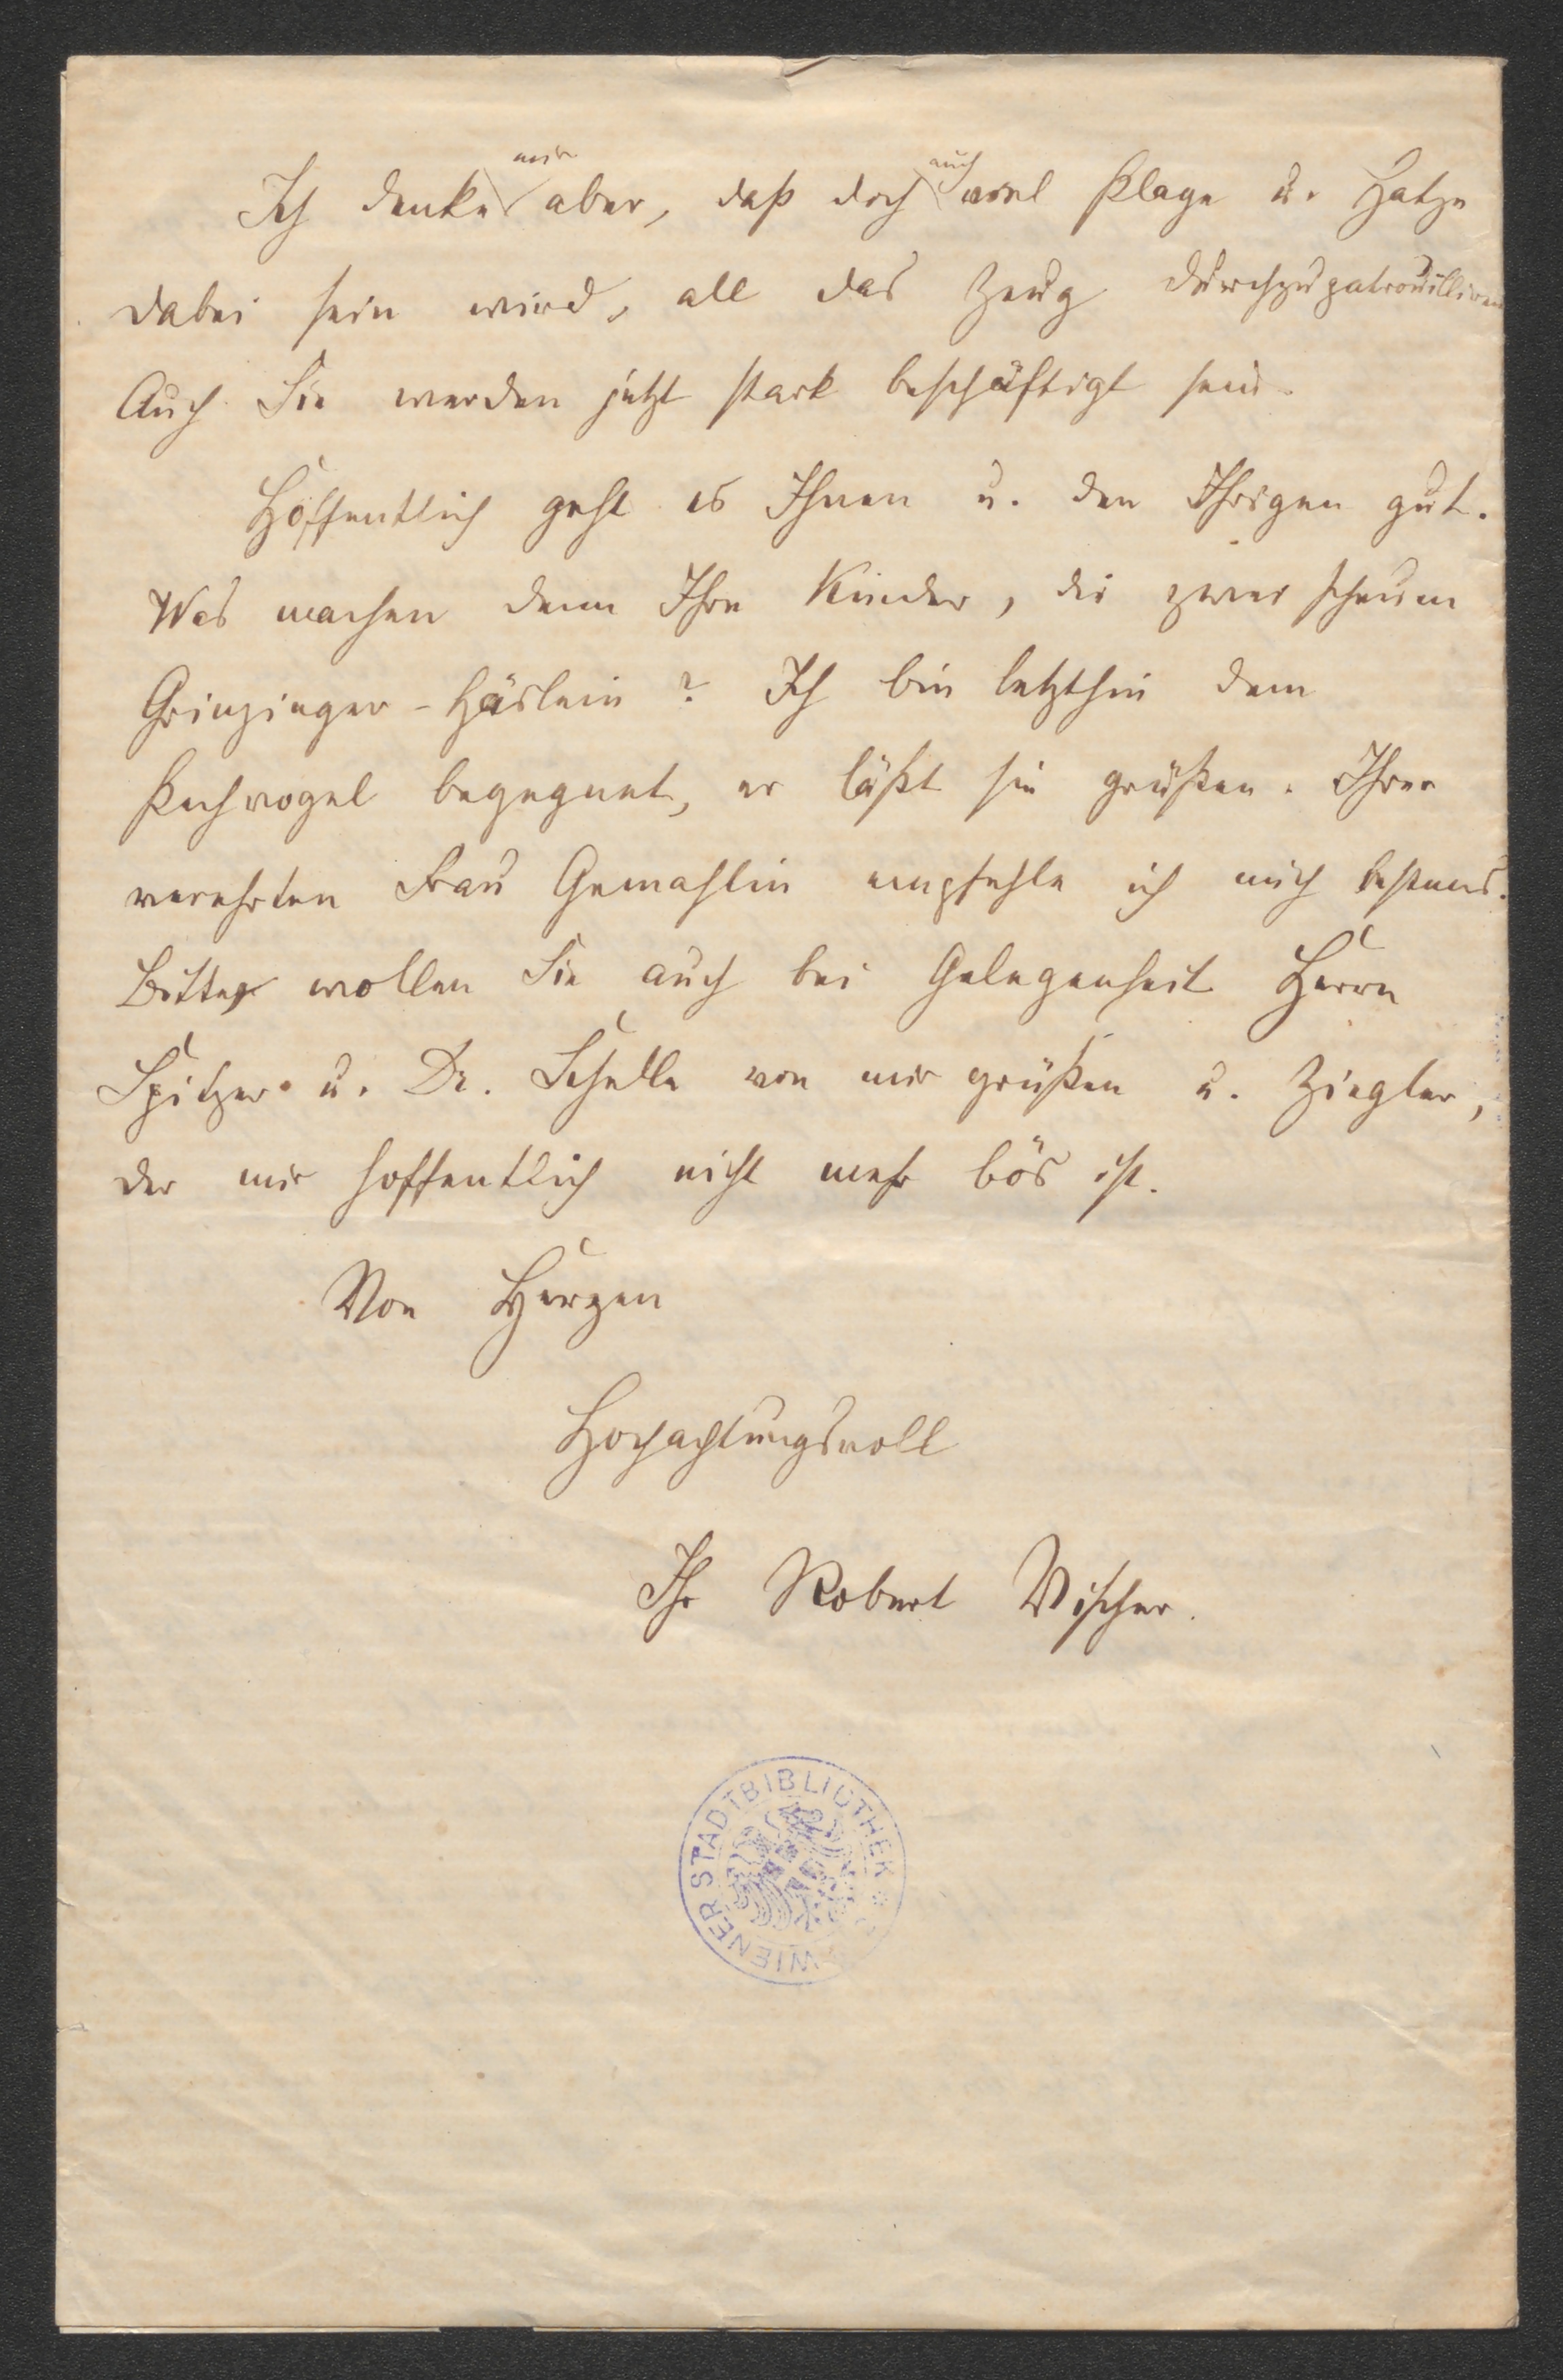 Ich denke mir aber, daß doch auch viel Plage u. Hatze
dabei sein wird, all das Zeug durchzupatrouilliren
Auch Sie werden jetzt stark beschäftigt sein.
Hoffentlich geht es Ihnen u. den Ihrigen gut.
Was machen denn Ihre Kinder, die zwei scheuen
Grinzinger-Häslein? Ich bin letzthin dem
Pechvogel begegnet, er läßt sie grüßen. Ihrer
verehrten Frau Gemahlin empfehle ich mich bestens.
Bitte, wollen Sie auch bei Gelegenheit Herrn
Spitzer u. Dr. Schelle von mir grüßen u. Ziegler,
der mir hoffentlich nicht mehr bös ist.
Von Herzen
Hochachtungsvoll
Ihr Robert Vischer.
WIENER STADTBIBLIOTHEK